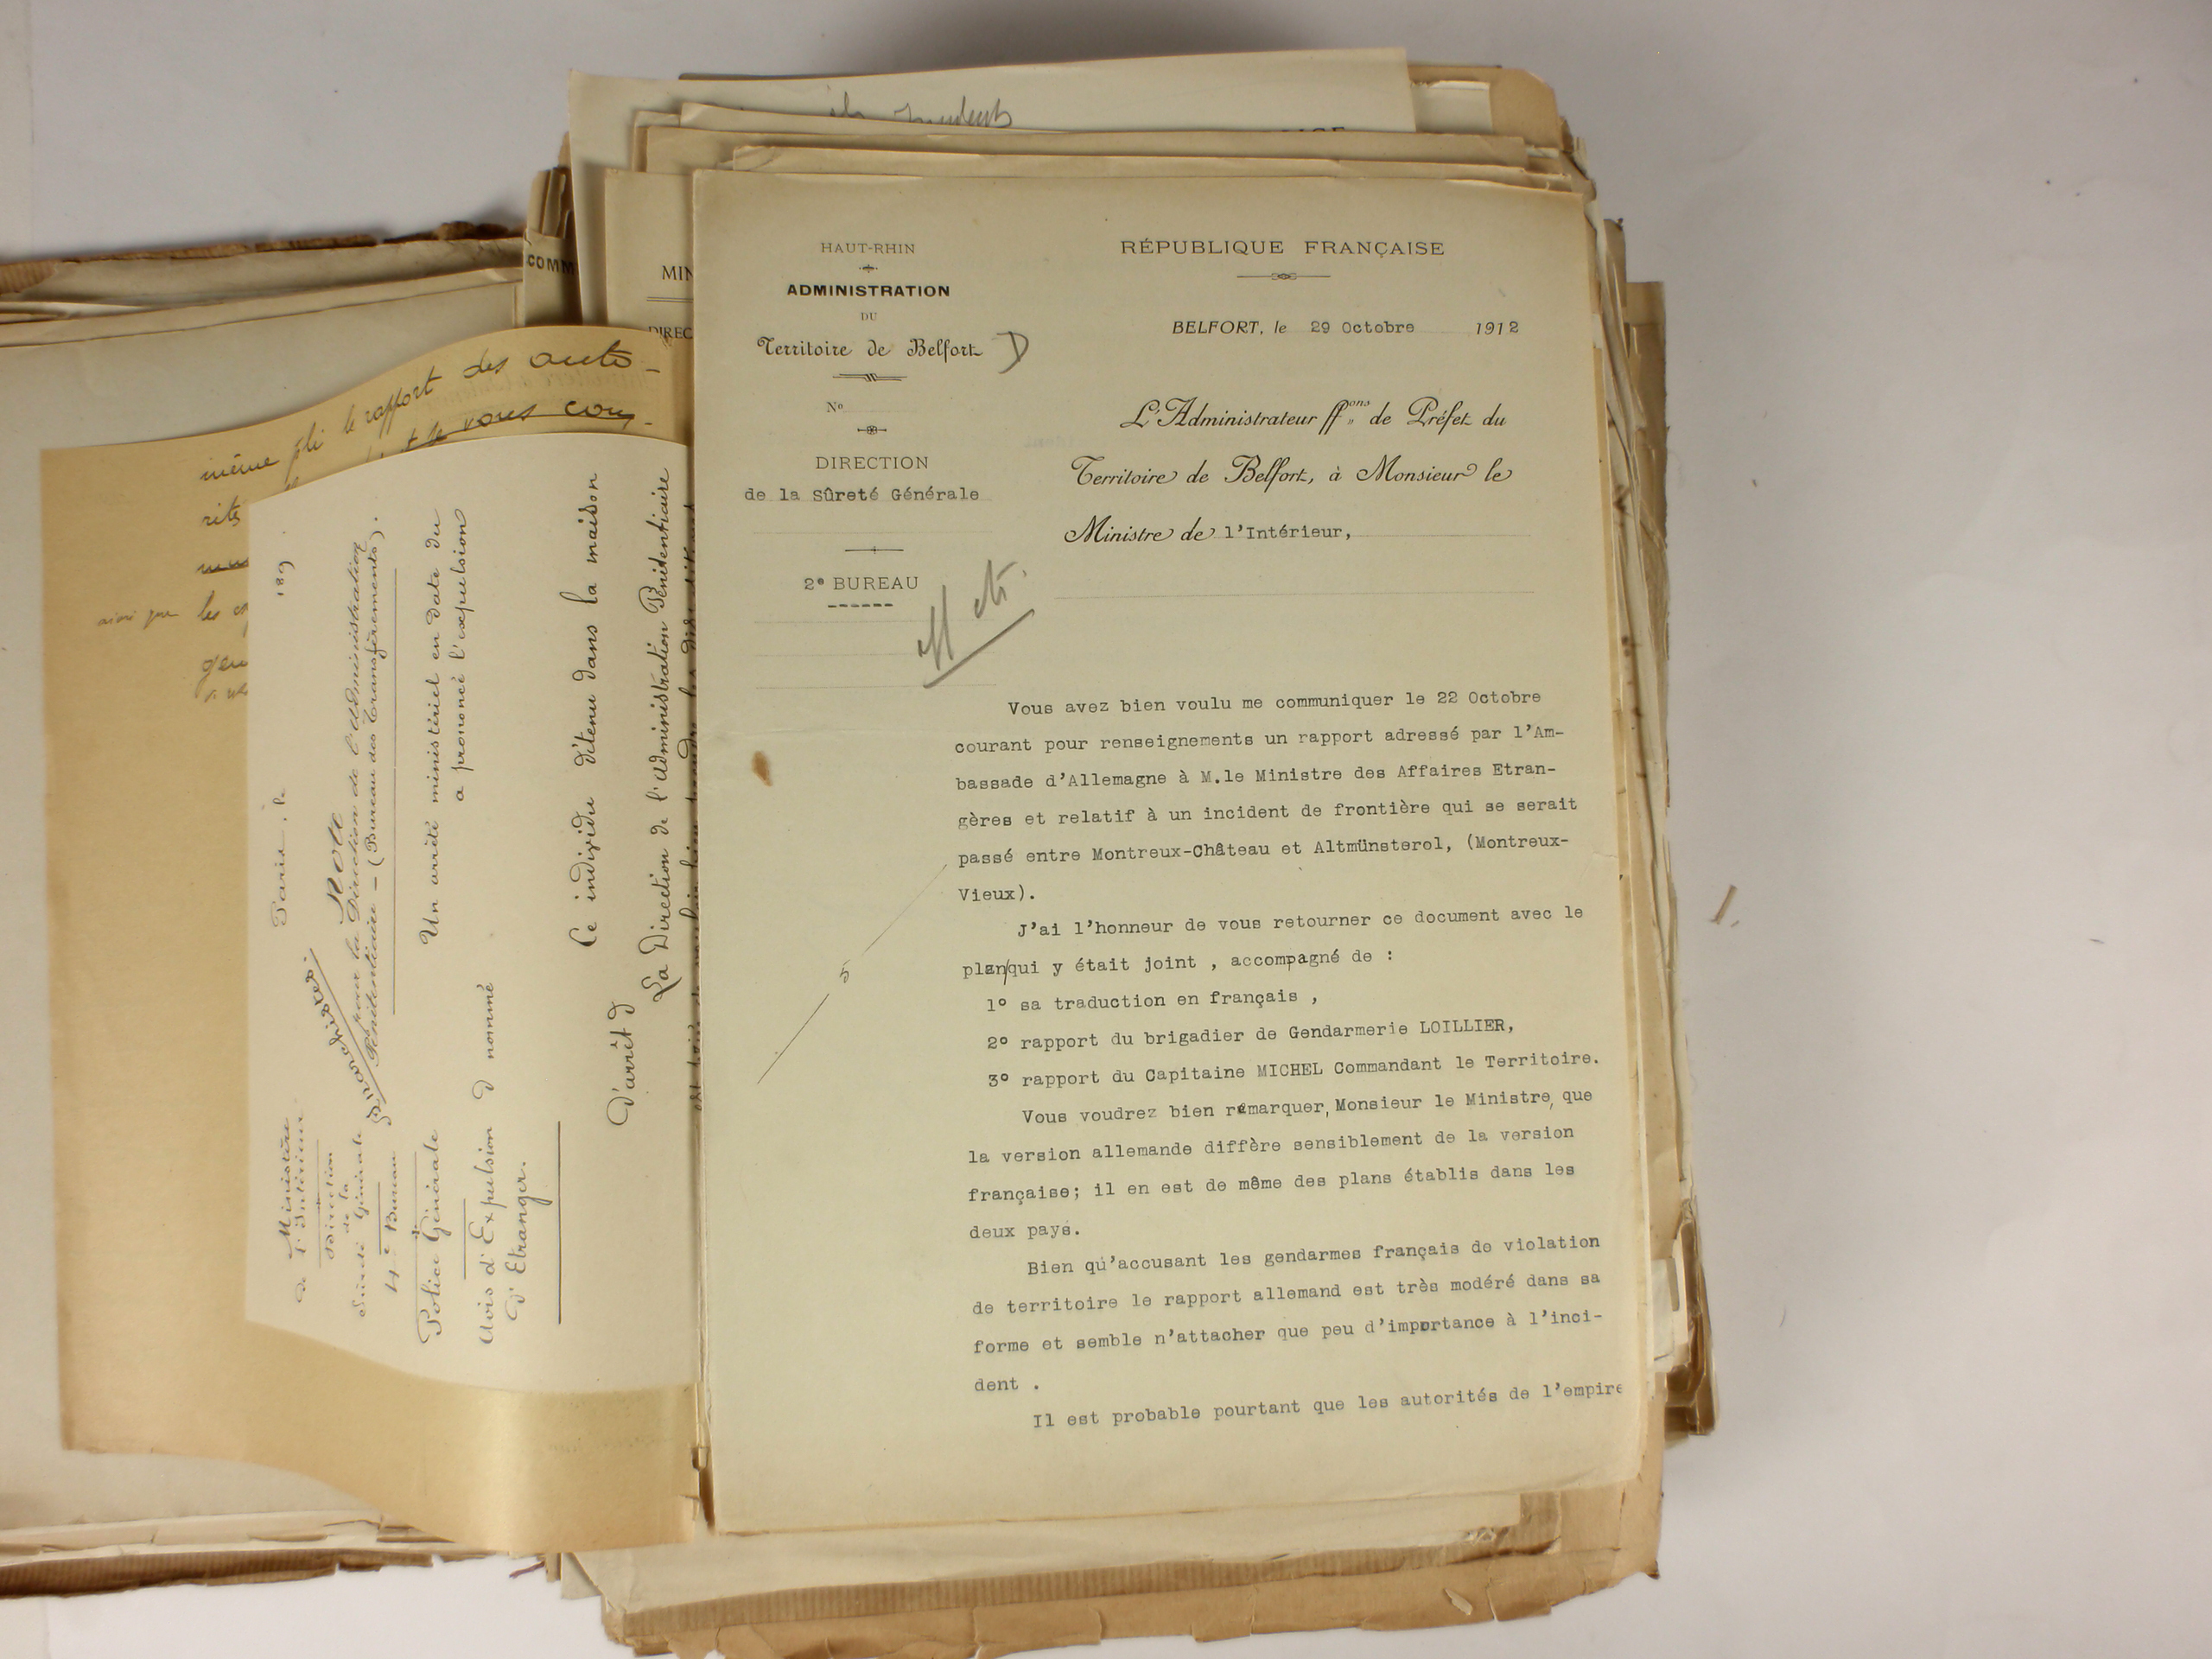 HAUT-RHIN
ADMINISTRATION
DU
Territoire de Belfort
D
Nº
DIRECTION
de la Sûreté Générale
2e BUREAU
RÉPUBLIQUE FRANÇAISE
BELFORT, le 29 Octobre 1912
L'Administrateur ffons de Préfet du
Territoire de Belfort, à Monsieur le
Ministre de l'Intérieur,
Vous avez bien voulu me communiquer le 22 Octobre
courant pour renseignements un rapport adressé par l'Am-
bassade d'Allemagne à M.le Ministre des Affaires Etran-
gères et relatif à un incident de frontière qui se serait
passé entre Montreux-Château et Altmünsterol, (Montreux-
Vieux).
J'ai l'honneur de vous retourner ce document avec le
plan/qui y était joint , accompagné de :
5
1° sa traduction en français ,
2° rapport du brigadier de Gendarmerie LOILLIER,
3° rapport du Capitaine MICHEL Commandant le Territoire.
Vous voudrez bien remarquer, Monsieur le Ministre, que
la version allemande diffère sensiblement de la version
française; il en est de même des plans établis dans les
deux pays.
Bien qu'accusant les gendarmes français de violation
de territoire le rapport allemand est très modéré dans sa
forme et semble n'attacher que peu d'importance à l'inci-
dent .
Il est probable pourtant que les autorités de l'empire
COMM
MIN
DIREC
même pli le rapport des auto-
vous com
rités
ainsi que les
Ministère
de l'Intérieur
Direction
de la
Sûreté Générale
4e Bureau
Police Générale
Avis d'Expulsion
d'Etranger.
Paris, le 189 .
Note
pour la Direction de l'Administration
Pénitentiaire – (Bureau des Transfèrements).
Un arrêté ministériel en date du
a prononcé l'expulsion
d nommé
Ce individu détenu dans la maison
d'arrêt d
La Direction de l'Administration Pénitentiaire